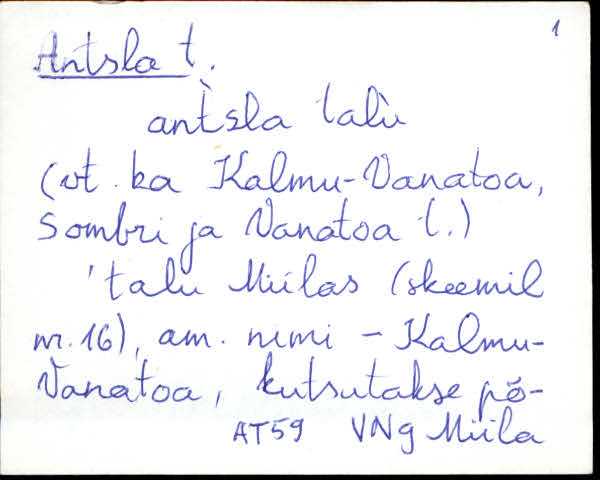 1
Antsla t.
ant̀sla talù
(vt. ka Kalmu-Vanatoa,
Sombri ja Vanatoa t.)
'talu Miilas (skeemil
nr. 16), am. nimi - Kalmu-
Vanatoa, kutsutakse põ-
AT59 VNg Miila